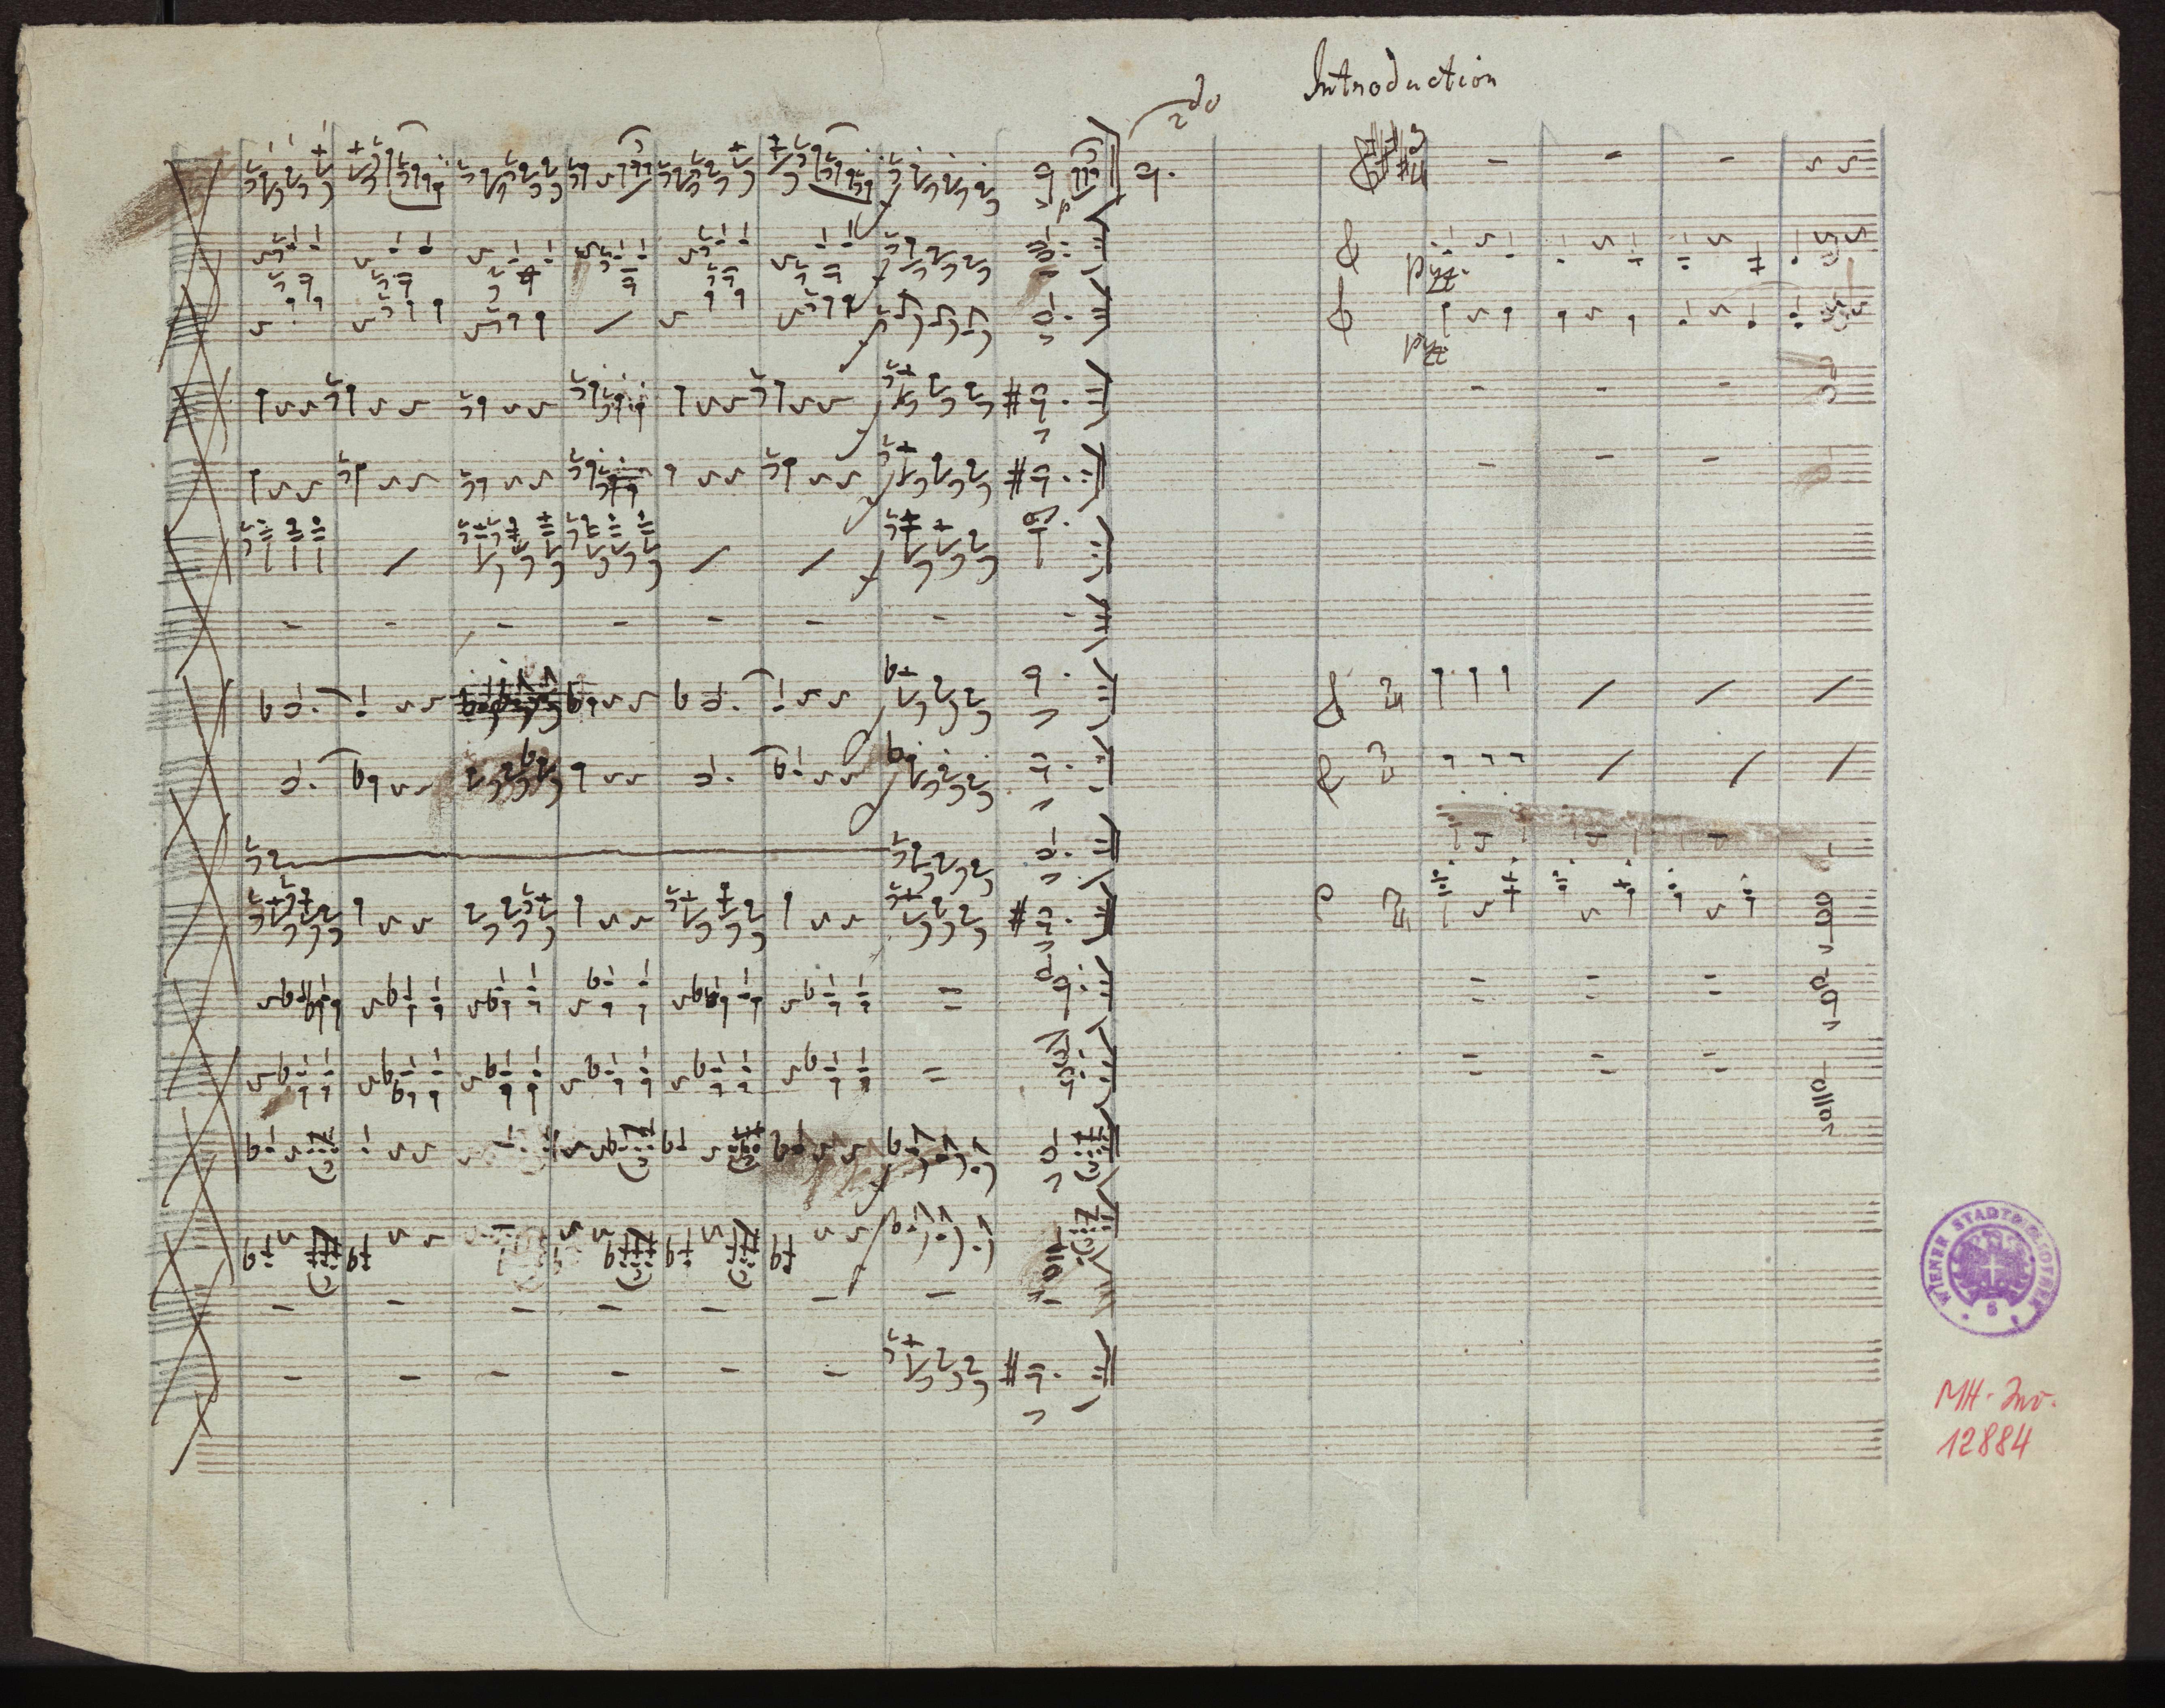 Introduction
2do
pizz.
pizz
p
WIENER STADTBIBLIOTHEK
MH-Inv.
12884